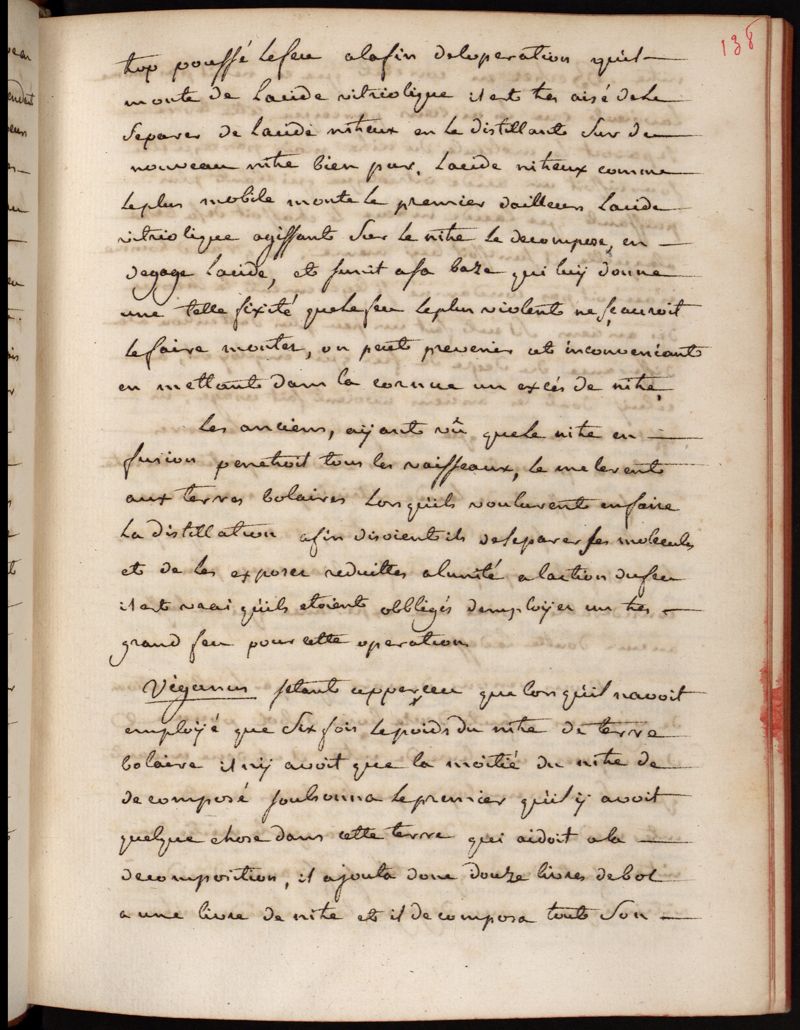 138
trop poussé lefeu alafin deloperation quil
monte de lacide vitriolique il est tres aisé dele
separer de lacide nitreux en le distillant sur du
nouveau nitre bien pur. lacide nitreux comme
leplus mobile monte le premier dailleurs lacide
vitriolique agissant sur le nitre le decompose, en
degage lacide, et sunit asa baze qui luy donne
une telle fixité quelefeu leplus violent ne sçauroit
lefaire monter, on peut prevenir cet inconvenient
en mettant dans la cornue un excés de nitre.
Les anciens, aÿant vû quele nitre en
fusion penetroit tous les vaisseaux, le melerent
aux terres bolaires lorsquils voulurent enfaire
la distillation afin disoientils deseparer ses molecules
et de les exposer reduittes alunité alaction dufeu
il est vrai quils etoient obbligés demployer un tres
grand feu pour cette operation
Viganus setant apperçeu que lorsquil navoit
employé que six fois lepoids du nitre de terre
bolaire il nÿ avoit que la moitié du nitre de
decomposé soubsonna lepremier quil ÿ avoit
quelque chose dans cette terre qui aidoit ala
decomposition, il ajouta donc douze livres debol
a une livre de nitre et il decomposa tout son